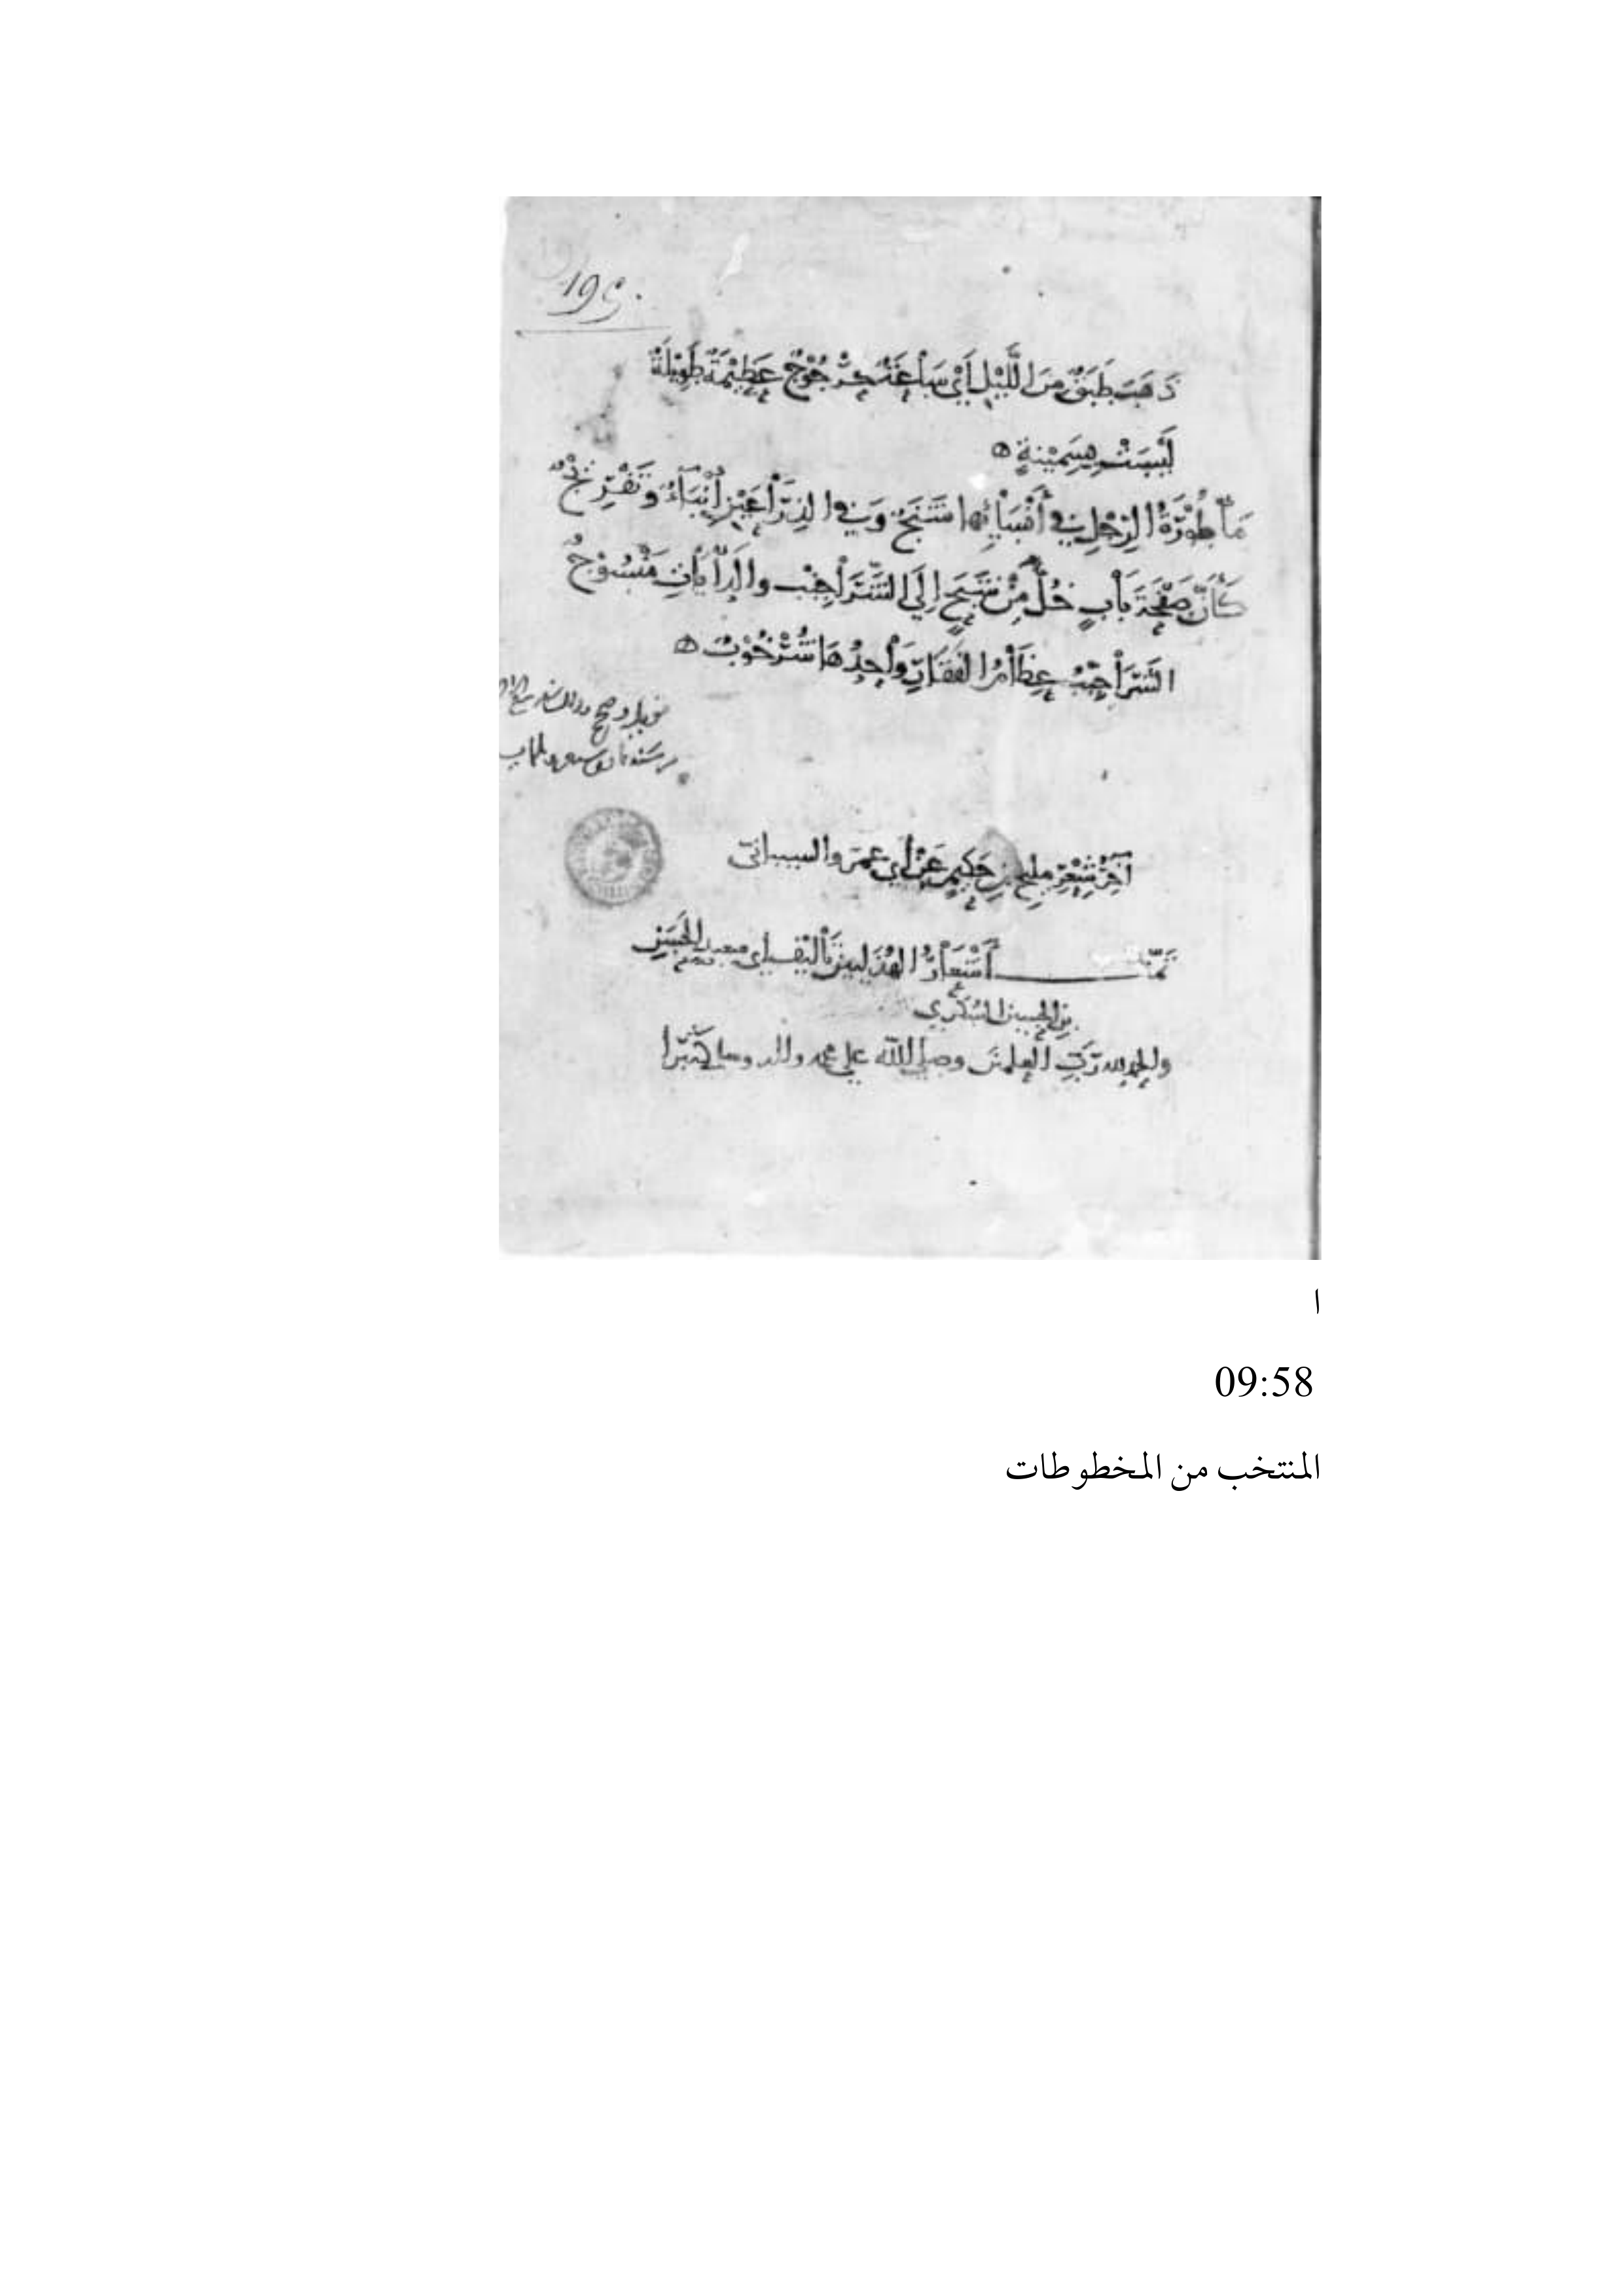 195.
ذَهَبَ طَبَقٌ مِنَ اللَّيْلِ أَيْ سَاعَةٌ حُرْجُوْجٌ عَظِيْمَةٌ طَوِيْلَةٌ
لَيْسَتْ بِسَمِيْنَةٍ
مَأْطُوْرَةُ الرِّجْلِ فِي أَنْسَائِهَا شَنَجٌ وَفِي الذِّرَاعَيْنِ
كَأَنَّ صَفْحَةَ بَابٍ كُلُّ مَنْسِجَةٍ إِلَى الشَّرَاجِبِ وَالدَّأَيَاتِ مَنْسُوْجُ
الشَّرَاجِبُ عِظَامُ الفَقَارِ وَاحِدُهَا شُرْجُوْبٌ
آخِرُ شِعْرِ مليح بنِ حَكِيمٍ عَنْ أبي عمرو الشيباني
تمَّت أَشْعَارُ الهُذَليين تَأليف أبي سعيد الحَسَنِ
بن الحسين السُكَّري
والحمد لله رَبِّ العلمين وصلى الله على محمد واله وسلم كثيرا
ا
09:58
المنتخب من المخطوطات